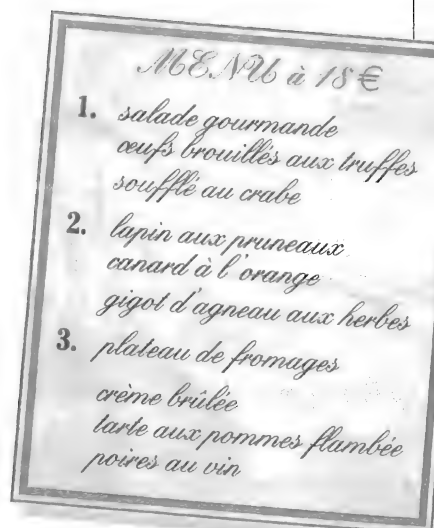 MENU à 18 €
1. salade gourmande
œufs brouillés aux truffes
soufflé au crabe
2. lapin aux pruneaux
canard à l'orange
gigot d'agneau aux herbes
3. plateau de fromages
crème brûlée
tarte aux pommes flambée
poires au vin